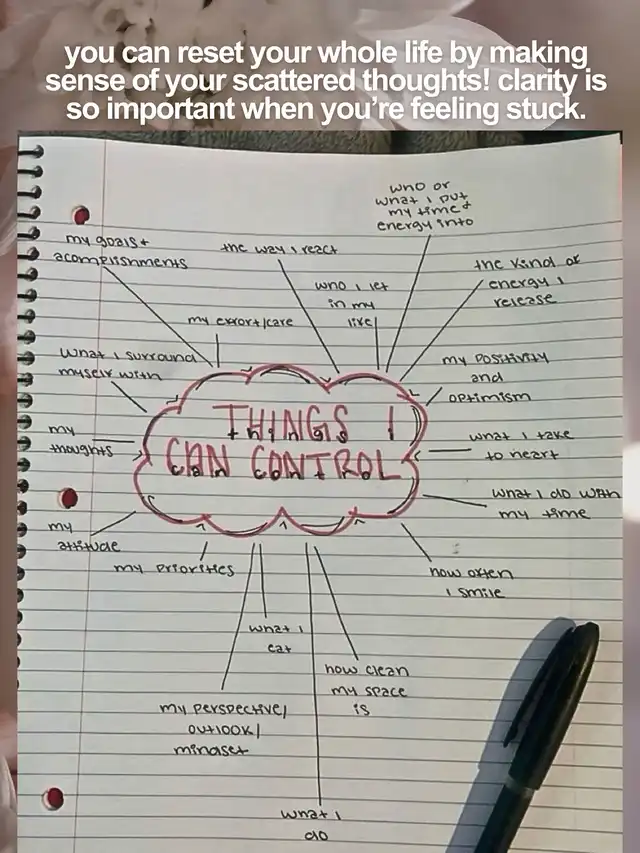 you can reset your whole life by making
sense of your scattered thoughts! clarity is
so important when you're feeling stuck.
who or
what i put
my time +
energy into
my goals +
acomplishments
the way i react
the kind of
energy i
release
who i let
in my
life
my effort/care
what i surround
myself with
my positivity
and
optimism
THINGS I
things
CAN CONTROL
can control
my
thoughts
what i take
to heart
what i do with
my time
my
attitude
my priorities
how often
i smile
what i
eat
how clean
my space
is
my perspective/
outlook/
mindset
what i
do